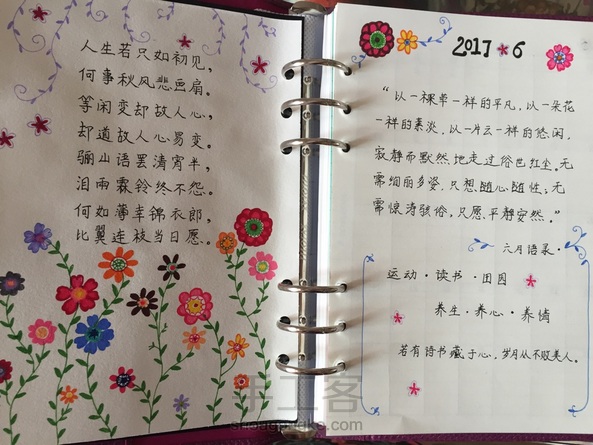 人生若只如初见，
何事秋风悲画扇。
等闲变却故人心，
却道故人心易变。
骊山语罢清宵半，
泪雨霖铃终不怨。
何如薄幸锦衣郎，
比翼连枝当日愿。
2017 6
“以一棵草一样的平凡，以一朵花
一样的素淡，以一片云一样的悠闲，
寂静而默然地走过俗世红尘。无
需绚丽多姿，只想随心随性；无
需惊涛骇俗，只愿平静安然。”
六月语录·
运动·读书·田园
养生·养心·养情
若有诗书藏于心，岁月从不败美人。
手工客
shougongke.com